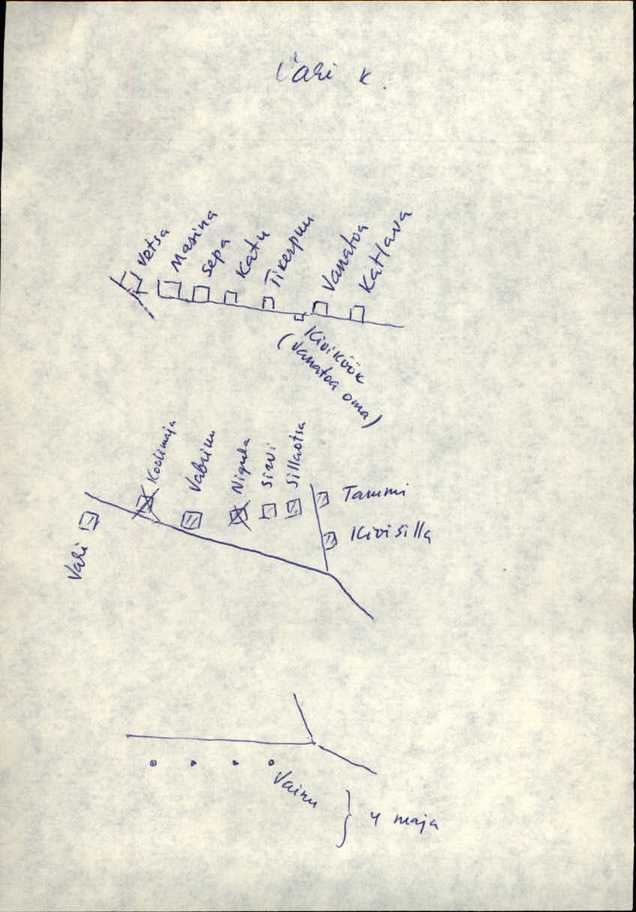 k.
Vetsa
Masina
Sepa
Katu
Tikerpuu
Vanatoa
Katlava
Kiviköök
(Vanatoa oma)
Koolimaja
Vabriku
Nigula
Sirvi
Sillaotsa
Tammi
Kivisilla
Vainu
} 4 maja